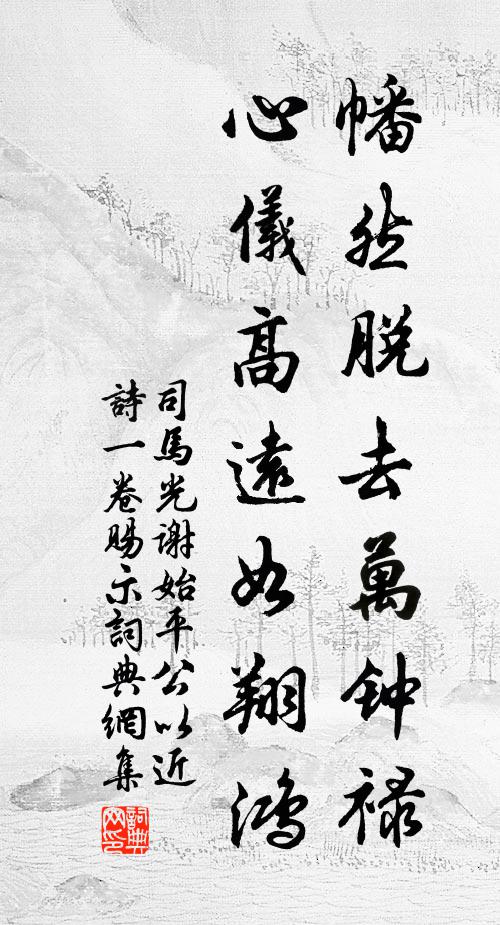 幡然脱去萬钟禄
心儀高遠如翔鴻
司馬光谢始平公以近
詩一卷赐示詞典網集
詞典
网印